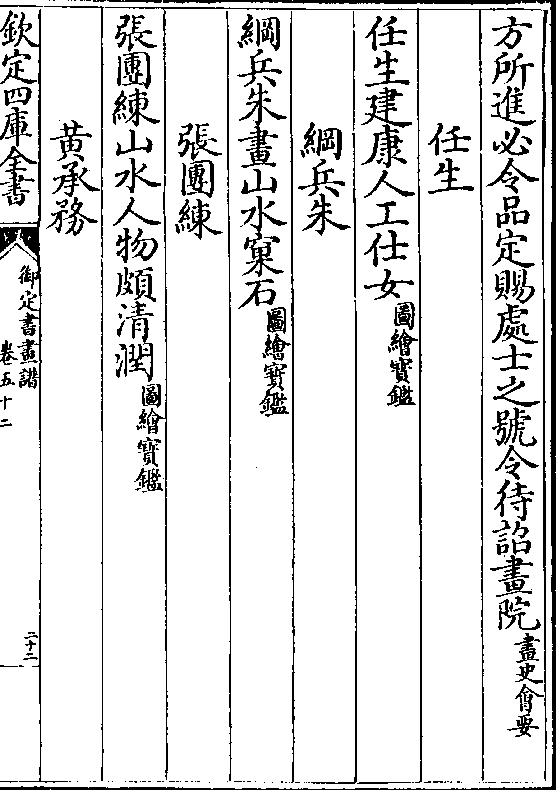 方所進必令品定賜處士之號令待詔畫院畫史會要
任生
任生建康人工仕女圖繪寶鑑
綱兵朱
綱兵朱畫山水窠石圖繪寶鑑
張團練
張團練山水人物頗清潤圖繪寶鑑
黄承務
欽定四庫全書
御定書畫譜
卷五十二
二十二